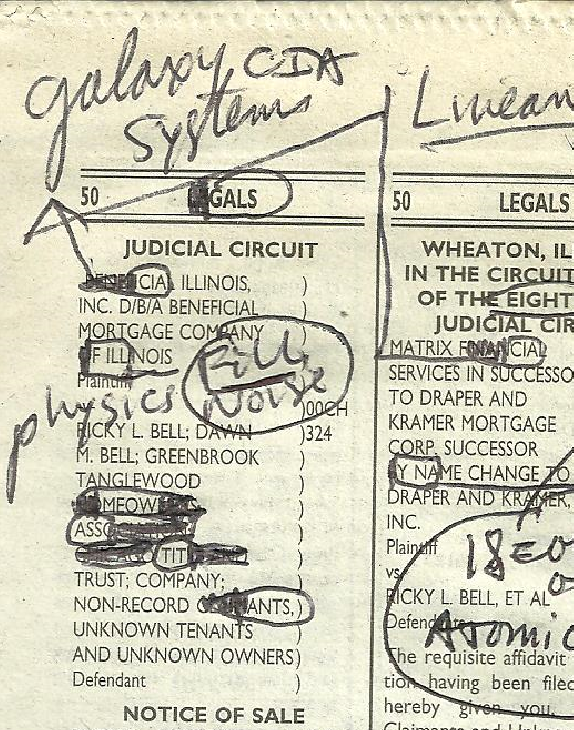 galaxy CIA
Systems
Linean
50 LEGALS
JUDICIAL CIRCUIT
BENEFICIAL ILLINOIS, )
INC. D/B/A BENEFICIAL )
MORTGAGE COMPANY
OF ILLINOIS
Plaintiff
Fill
Noise
physics
)00CH
RICKY L. BELL; DAWN )324
M. BELL; GREENBROOK )
TANGLEWOOD )
TIT
TRUST; COMPANY; )
NON-RECORD )
UNKNOWN TENANTS )
AND UNKNOWN OWNERS)
Defendant )
NOTICE OF SALE
50 LEGALS
WHEATON, IL
IN THE CIRCUIT
OF THE EIGHT
JUDICIAL CIR
MATRIX FINANCIAL
SERVICES IN SUCCESSO
TO DRAPER AND
KRAMER MORTGAGE
CORP. SUCCESSOR
Y NAME CHANGE TO
DRAPER AND KRAMER,
INC.
Plaintiff
vs.
RICKY L. BELL, ET AL
Defendants
Atomic
The requisite affidavit
tion having been filed
hereby given you,